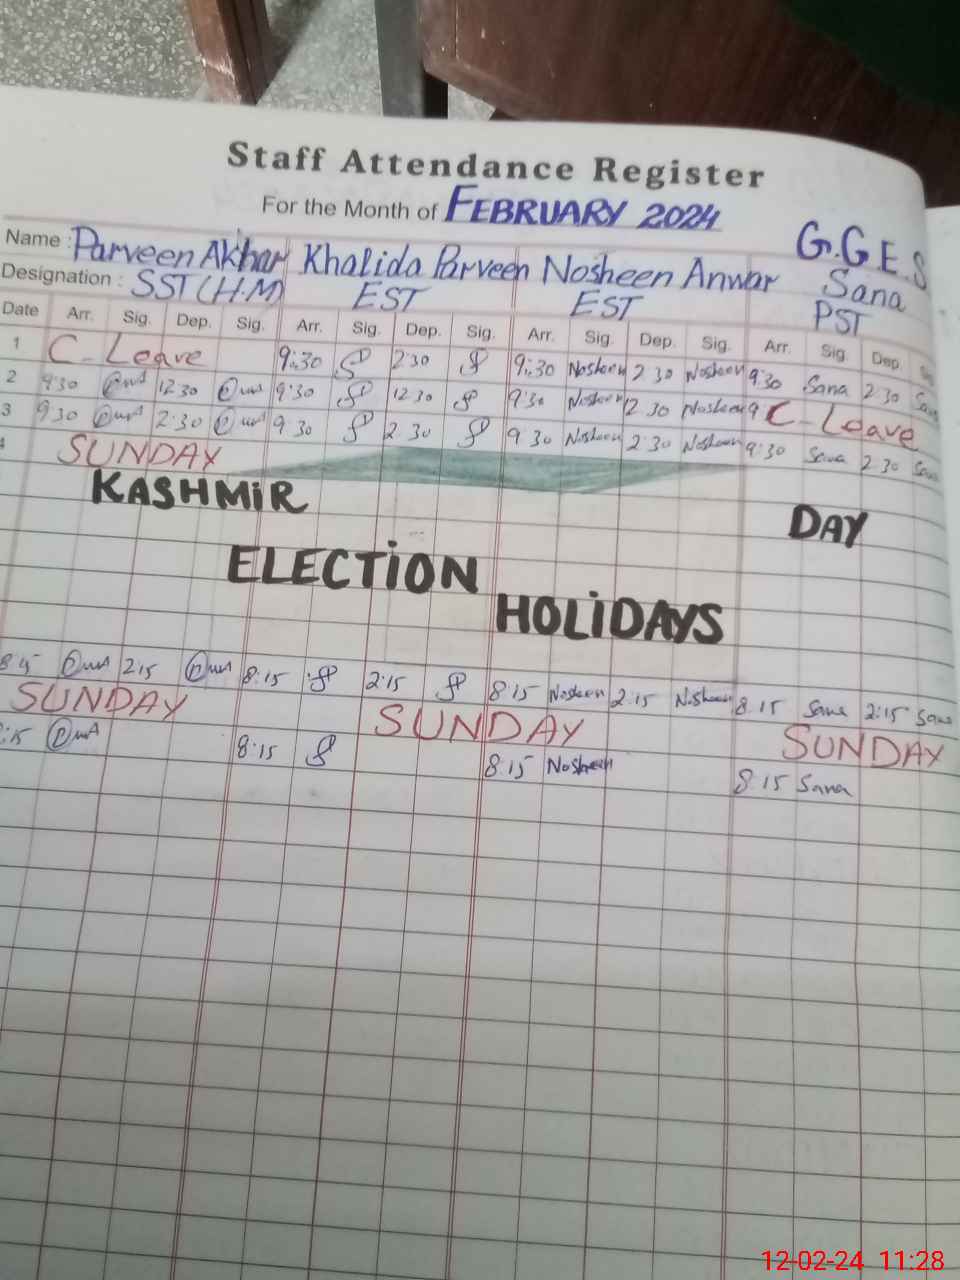 Staff Attendance Register
For the Month of FEBRUARY 2024
G.G.E.S
Name : Parveen Akhar Khalida Parveen Nosheen Anwar Sana
Designation : SST (H.M) EST EST PST
Date Arr. Sig. Dep. Sig. Arr. Sig. Dep. Sig. Arr. Sig. Dep. Sig. Arr. Sig. Dep. Sig
1 C-Leave 9:30 2 30 9:30 Nosheen 2 30 Nosheen 9:30 Sana 2 30 Sana
2 9:30 12 30 9:30 12 30 9:30 Nosheen 12 30 Nosheen 9 C-Leave
3 9 30 2:30 9 30 2 30 9 30 Nosheen 2:30 Nosheen 9:30 Sana 2 30 Sana
4 SUNDAY
KASHMIR DAY
ELECTION
HOLIDAYS
2:15 8:15 2:15 8:15 Nosheen 2:15 Nosheen 8 15 Sana 2:15 Sana
SUNDAY SUNDAY SUNDAY
:15 8:15 8:15 Nosheen 8 15 Sana
12-02-24 11:28